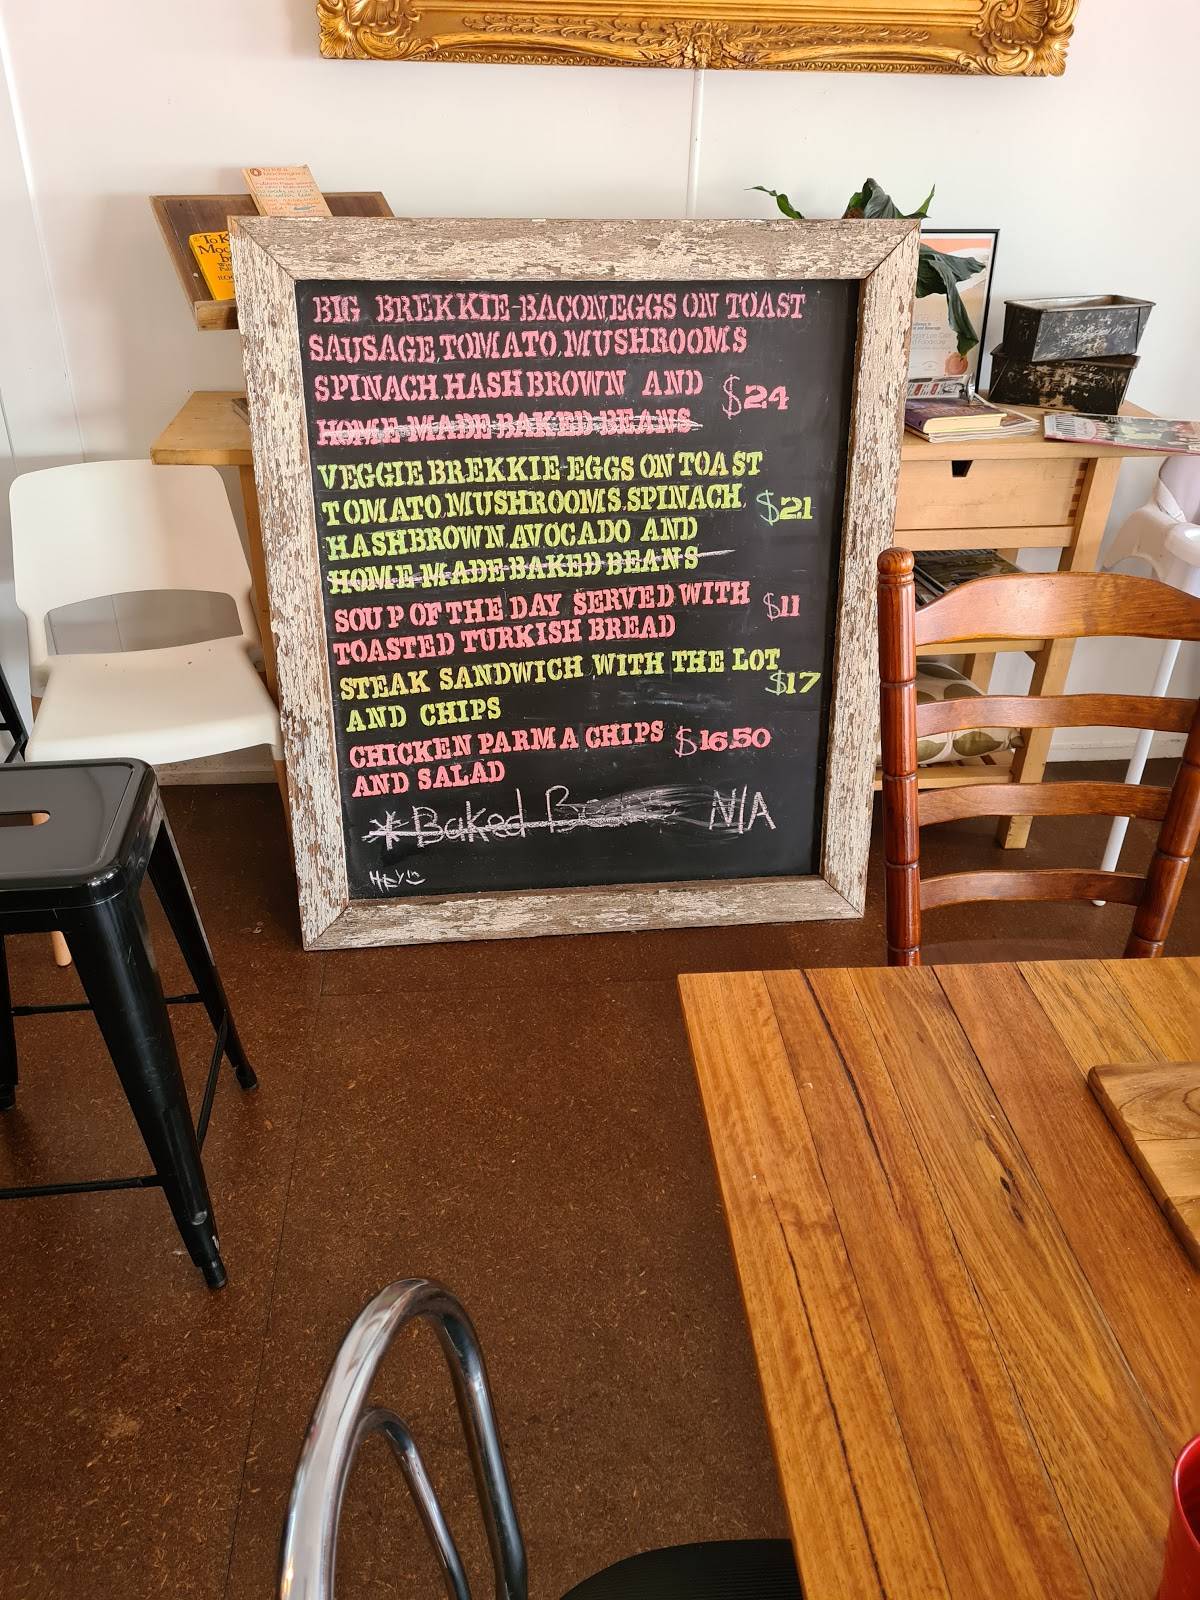 To K
Moc
BIG BREKKIE-BACON,EGGS ON TOAST
SAUSAGE,TOMATO,MUSHROOMS
SPINACH,HASHBROWN AND $24
HOME-MADE BAKED BEANS
VEGGIE BREKKIE-EGGS ON TOAST
TOMATO,MUSHROOMS,SPINACH, $21
HASHBROWN,AVOCADO AND
HOME-MADE BAKED BEANS
SOUP OF THE DAY SERVED WITH $11
TOASTED TURKISH BREAD
STEAK SANDWICH WITH THE LOT $17
AND CHIPS
CHICKEN PARMA CHIPS $16.50
AND SALAD
* Baked Beans N/A